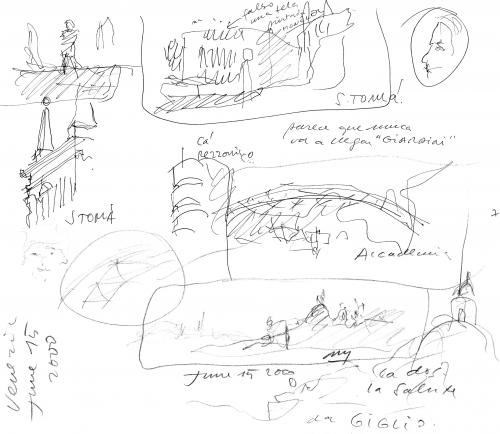 una tela
S. TOMÁ.
parece que nunca
va a llegar "GIARDINI"
Ca'
Rezzonico
S TOMÁ
Accademia
Venezia
June 15
2000
June 15 2000
(la dos)
la Salute
da GIGLIO.